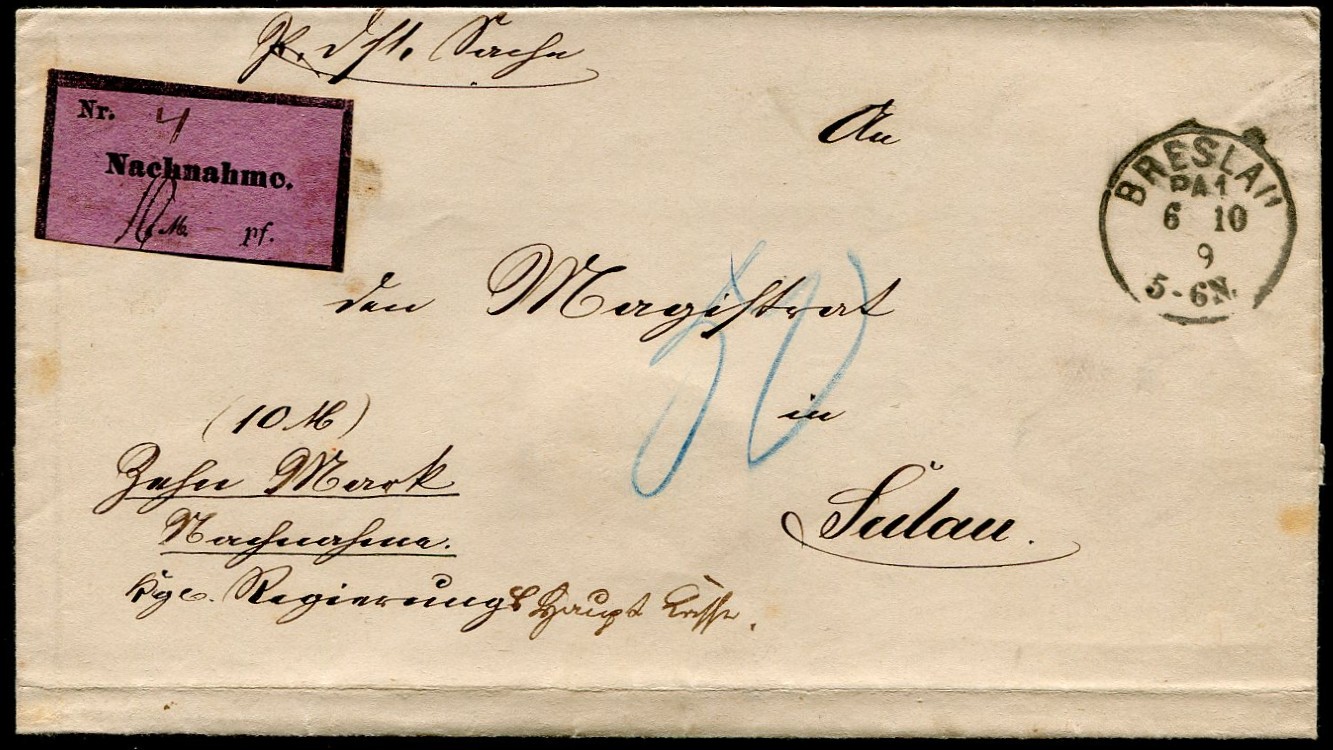 P. Dst. Sache
Nr. 4
Nachnahme.
10 M. pf.
An
BRESLAU
PA1
6 10
9
5-6N.
den Magistrat
50
in
Sulau.
(10 M)
Zehn Mark
Nachnahme.
Kgl. Regierungs Haupt Kasse.